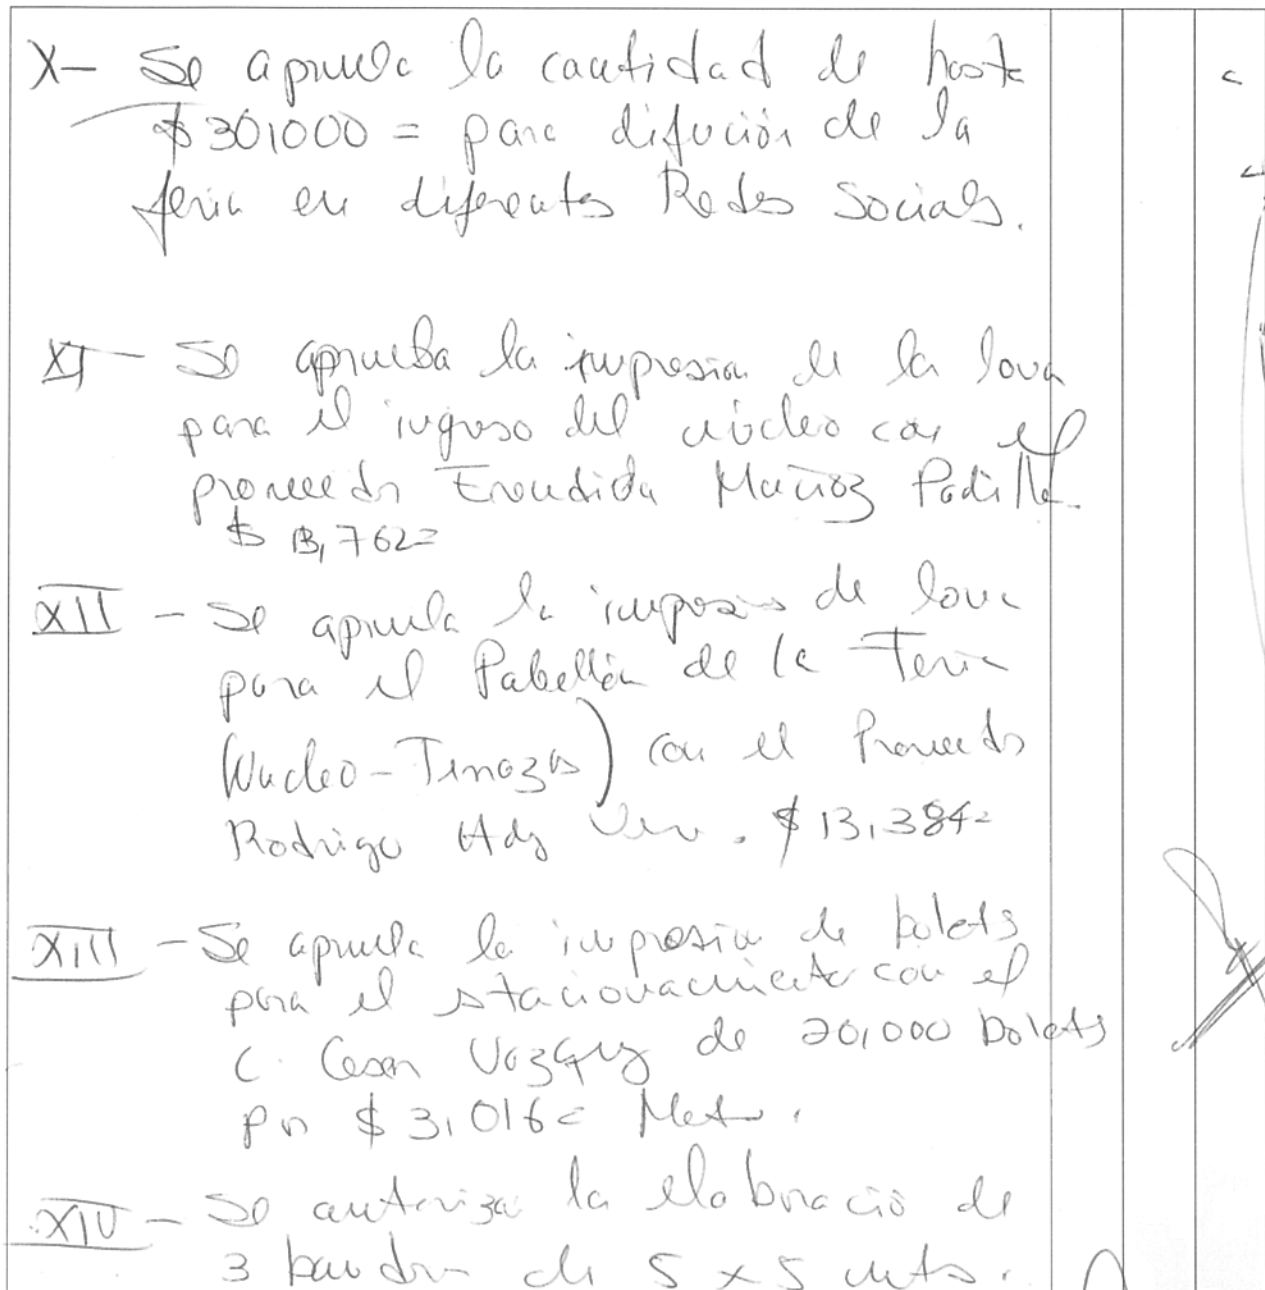 X- Se aprueba la cantidad de hasta
$30,000= para difución de la
feria en diferentes Redes Sociales.
XI - Se aprueba la impresion de la lona
para el ingreso del núcleo con el
proveedor Erendida Muñoz Padilla
$ 13,762=
XII - Se aprueba la impresion de lona
para el Pabellón de la Feria
(Nucleo-Tenazas) con el Proveedor
Rodrigo $13,384=
XIII - Se aprueba la impresion de boletos
para el estacionamiento con el
C. Cesar Vazquez de 20,000 boletos
por $3,016=
XIV - Se autoriza la elaboració de
3 de 5 x 5 mts.